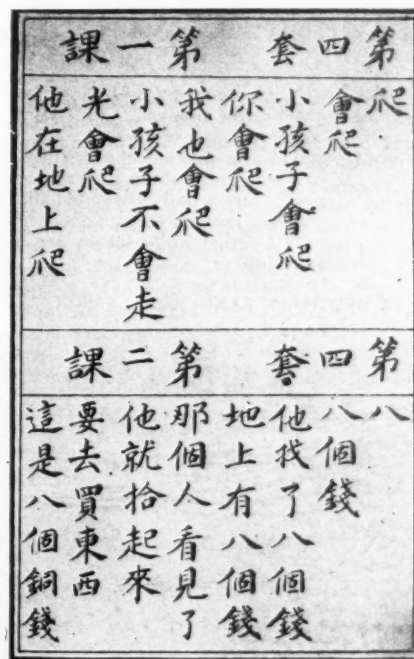 第四套 第一課
爬
會爬
小孩子會爬
你會爬
我也會爬
小孩子不會走
光會爬
他在地上爬
第四套 第二課
八
八個錢
他找了八個錢
地上有八個錢
那個人看見了
他就拾起來
要去買東西
這是八個銅錢